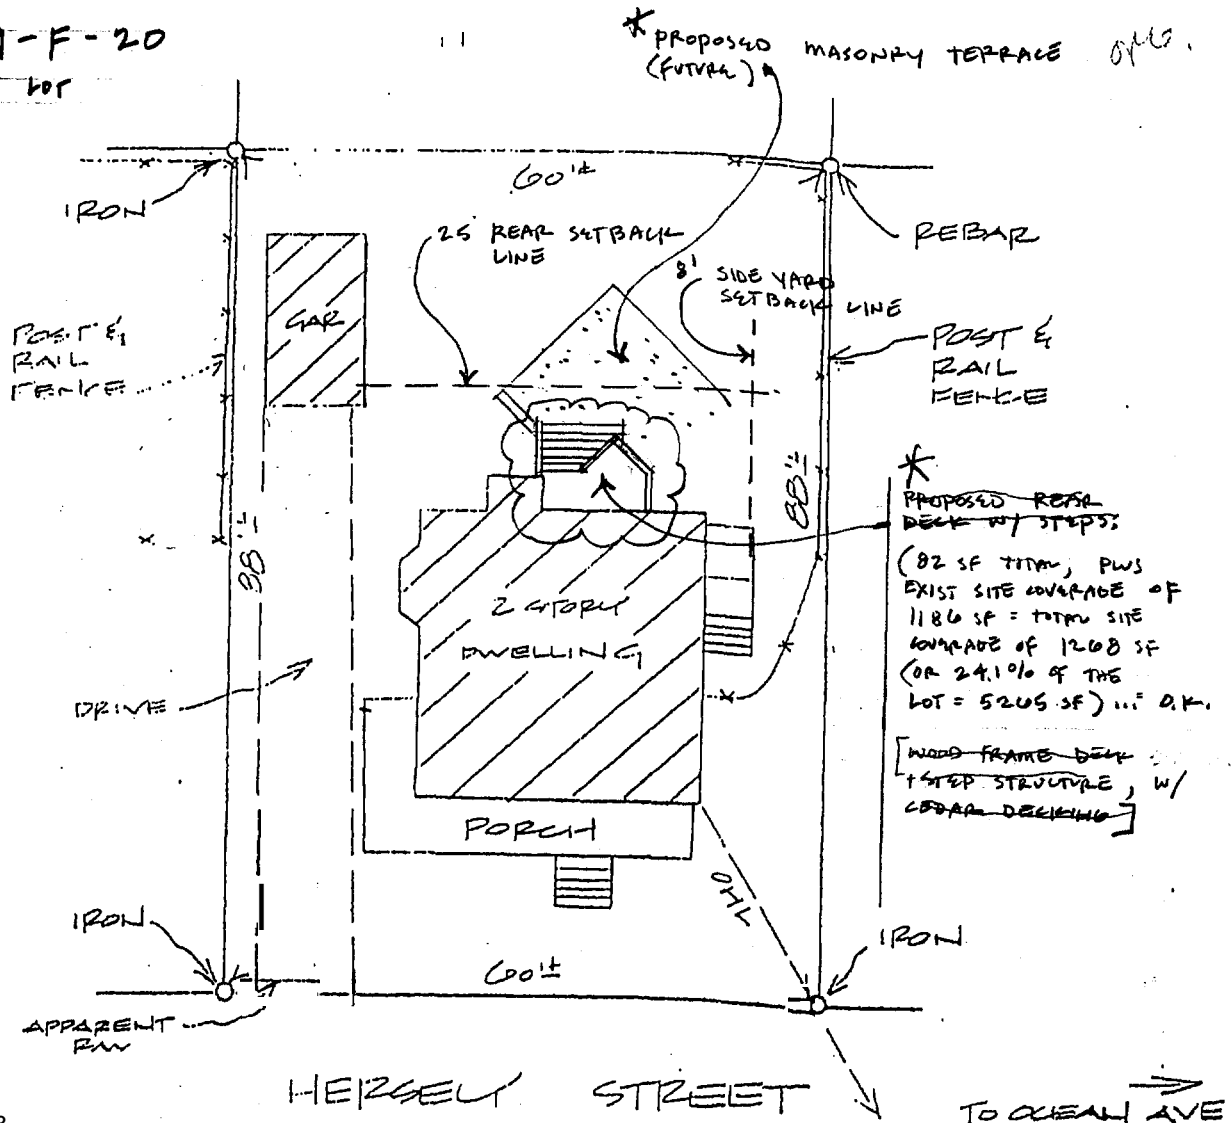 -F-20
LOT
* PROPOSED MASONRY TERRACE
(FUTURE)
60'±
IRON
REBAR
25' REAR SETBACK
LINE
8' SIDE YARD
SETBACK LINE
GAR
POST &
RAIL
FENCE
POST &
RAIL
FENCE
88'±
88'±
*
PROPOSED REAR
DECK W/ STEPS:
(82 SF TOTAL, PLUS
EXIST SITE COVERAGE OF
1186 SF = TOTAL SITE
COVERAGE OF 1268 SF
(OR 24.1% OF THE
LOT = 5265 SF) ... O.K.
[WOOD FRAME DECK
+ STEP STRUCTURE, W/
CEDAR DECKING]
2 STORY
DWELLING
DRIVE
PORCH
OHL
IRON
IRON
60'±
APPARENT
HERSEY STREET
TO OCEAN AVE